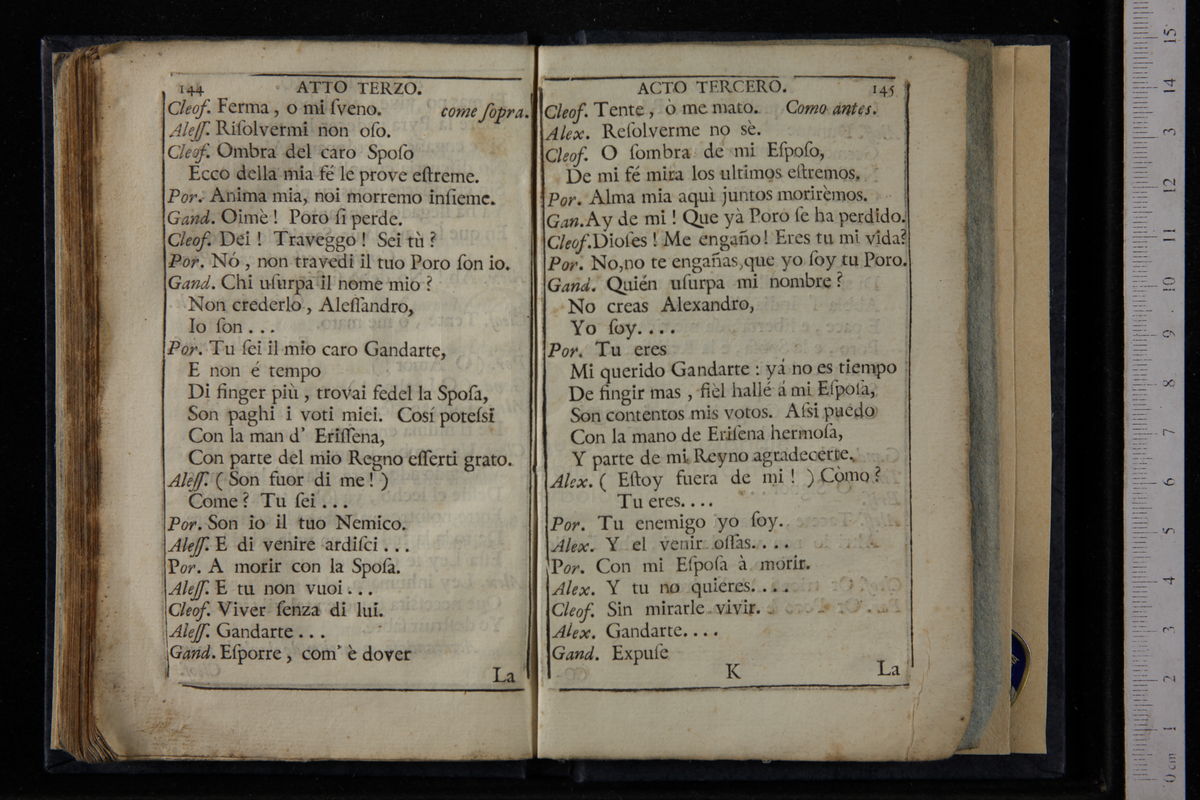 144 ATTO TERZO.
Cleof. Ferma, o mi ſveno. come ſopra.
Aleſſ. Riſolvermi non oſo.
Cleof. Ombra del caro Spoſo
Ecco della mia fé le prove eſtreme.
Por. Anima mia, noi morremo inſieme.
Gand. Oimè! Poro ſi perde.
Cleof. Dei! Traveggo! Sei tù?
Por. Nó, non travedi il tuo Poro ſon io.
Gand. Chi uſurpa il nome mio?
Non crederlo, Aleſſandro,
Io ſon...
Por. Tu ſei il mio caro Gandarte,
E non é tempo
Di finger più, trovai fedel la Spoſa,
Son paghi i voti miei. Cosí poteſsi
Con la man d' Eriſſena,
Con parte del mio Regno eſſerti grato.
Aleſſ. (Son fuor di me!)
Come? Tu ſei...
Por. Son io il tuo Nemico.
Aleſſ. E di venire ardiſci...
Por. A morir con la Spoſa.
Aleſſ. E tu non vuoi...
Cleof. Viver ſenza di lui.
Aleſſ. Gandarte...
Gand. Eſporre, com' è dover
La
ACTO TERCERO. 145
Cleof. Tente, ò me mato. Como antes.
Alex. Reſolverme no sè.
Cleof. O ſombra de mi Eſpoſo,
De mi fé mira los ultimos eſtremos.
Por. Alma mia aquì juntos morirèmos.
Gan. Ay de mi! Que yà Poro ſe ha perdido.
Cleof. Dioſes! Me engaño! Eres tu mi vida?
Por. No, no te engañas, que yo ſoy tu Poro.
Gand. Quién uſurpa mi nombre?
No creas Alexandro,
Yo ſoy....
Por. Tu eres
Mi querido Gandarte: yá no es tiempo
De fingir mas, fièl hallé á mi Eſpoſa,
Son contentos mis votos. Aſsi puedo
Con la mano de Eriſena hermoſa,
Y parte de mi Reyno agradecerte.
Alex. (Eſtoy fuera de mi!) Còmo?
Tu eres....
Por. Tu enemigo yo ſoy.
Alex. Y el venir oſſas....
Por. Con mi Eſpoſa à morir.
Alex. Y tu no quieres....
Cleof. Sin mirarle vivir.
Alex. Gandarte....
Gand. Expuſe
K La